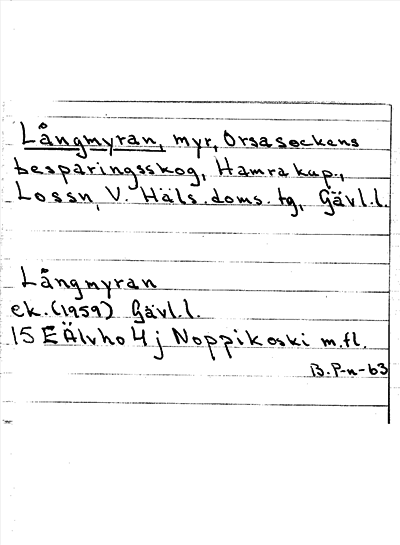 Långmyran, myr, Orsa sockens
besparingsskog, Hamra kap.,
Lossn, V. Häls. doms. tg, Gävl.l.
Långmyran
ek. (1959) Gävl.l.
15 E Älvho 4 j Noppikoski m.fl.
B. P-n-63